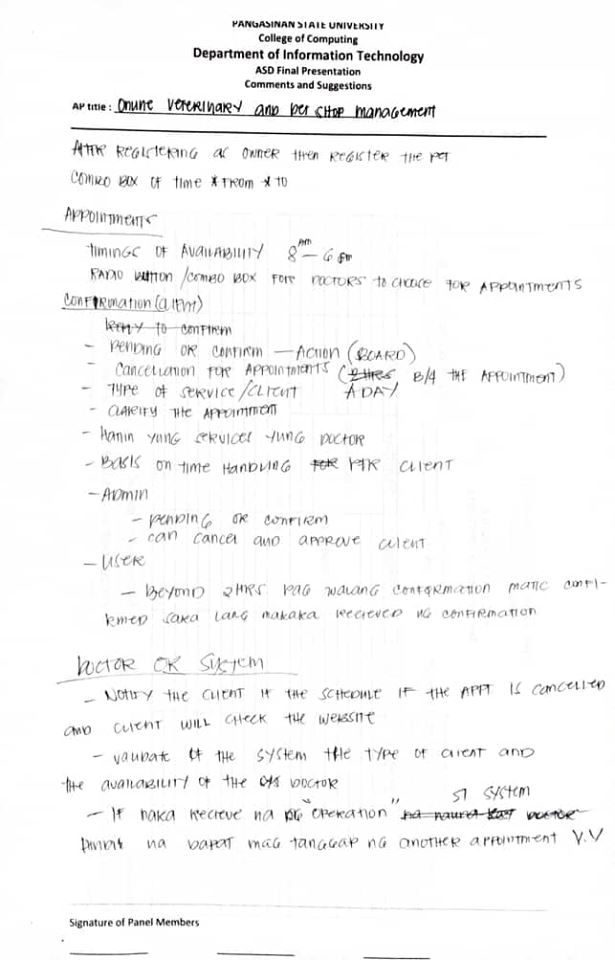 PANGASINAN STATE UNIVERSITY
College of Computing
Department of Information Technology
ASD Final Presentation
Comments and Suggestions
AP title : Online Veterinary and Pet Shop Management
After registering as owner then register the pet
Combo box of time * from * to
Appointments
Timings of availability 8 AM – 6 PM
Radio button / combo box for doctors to choose for appointments
Confirmation (client)
to confirm
- Pending or confirm — Action (BOARD)
- Cancellation for appointments (2 HRS B/4 the appointment)
- Type of service / client A DAY
- Clarify the appointment
- Hanin yung services yung doctor
- Basis on time handling for per client
- Admin
- pending or confirm
- can cancel and approve client
- User
- Beyond 2hrs pag walang confirmation matic confi-
rmed saka lang makaka recieved ng confirmation
Doctor or System
- Notify the client if the schedule if the appt is cancelled
and client will check the website
- validate of the system the type of client and
the availability of the doctor
- If naka recieve na ng "operation" si system
na dapat mag tanggap ng another appointment V.V
Signature of Panel Members